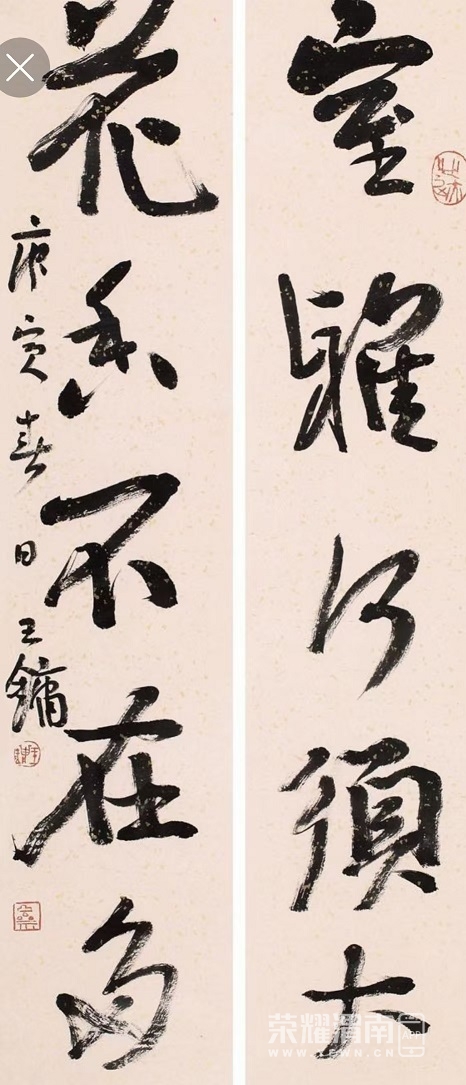 室雅何须大
花香不在多
庚寅春日王镛
荣耀渭南
WWW.IEWN.CN